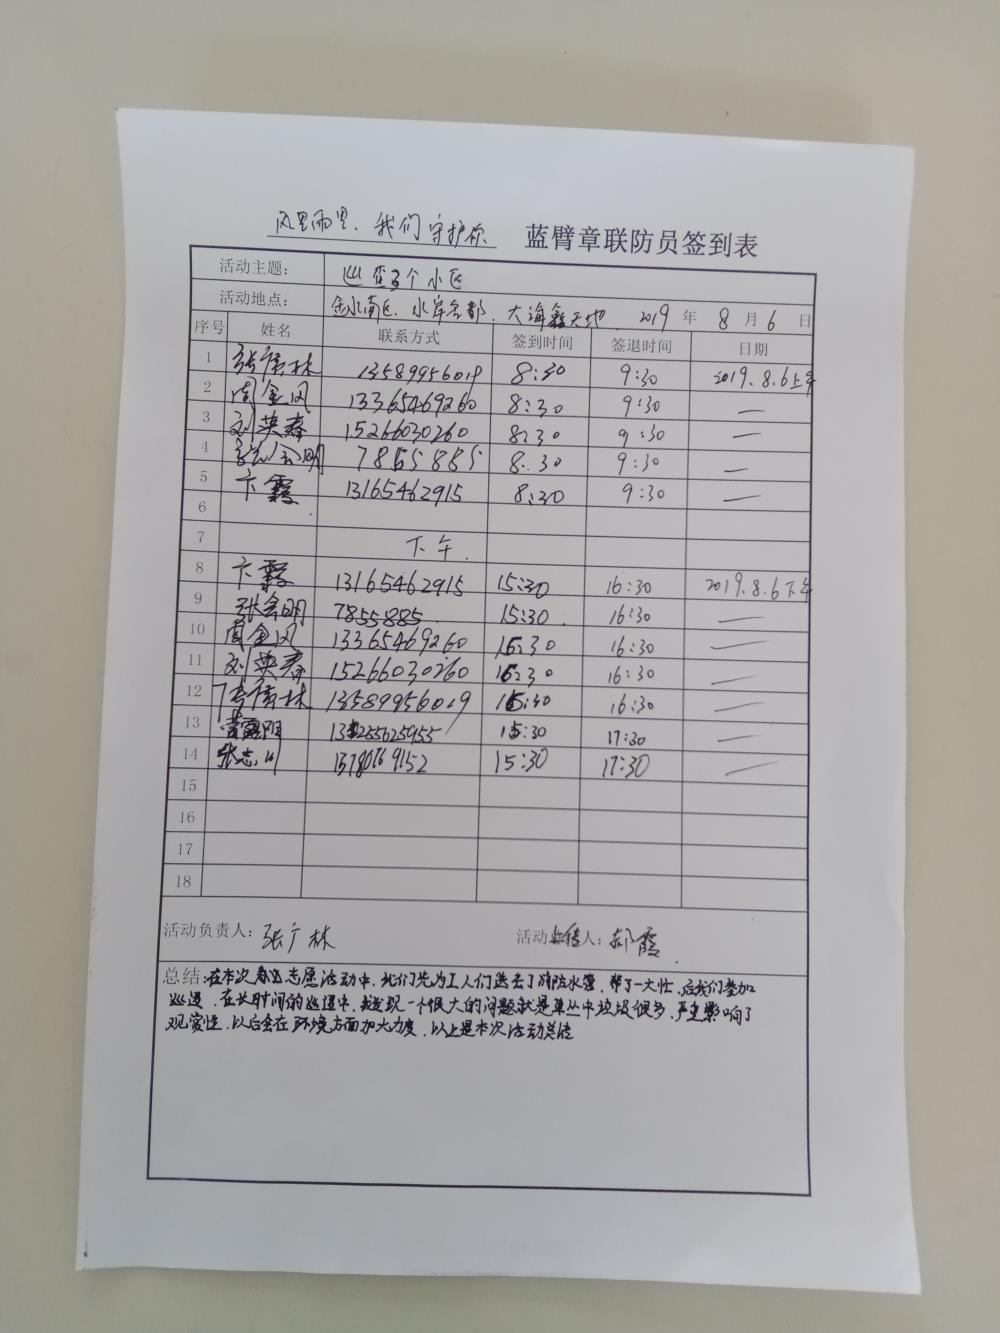 风里雨里、我们守护你 蓝臂章联防员签到表
活动主题： 巡查3个小区
活动地点： 金水南区、水岸名都、大海鑫天地 2019 年 8 月 6 日
序号 姓名 联系方式 签到时间 签退时间 日期
1 张广林 13589956019 8:30 9:30 2019.8.6上午
2 周金凤 13365469260 8:30 9:30 —
3 刘英春 15266030260 8:30 9:30 —
4 张会明 7855885 8:30 9:30 —
5 卞霞 13165462915 8:30 9:30 —
6
7 下午.
8 卞霞 13165462915 15:30 16:30 2019.8.6下午
9 张会明 7855885 15:30 16:30 —
10 周金凤 13365469260 15:30 16:30 —
11 刘英春 15266030260 15:30 16:30 —
12 张广林 13589956019 15:30 16:30 —
13 15:30 17:30 —
14 张志 15:30 17:30 —
15
16
17
18
活动负责人：张广林 活动上传人：郝霞
总结：在本次志愿活动中，我们先为工人们送去了消防水带，帮了一大忙，后我们参加
巡逻，在长时间的巡逻中，我发现一个很大的问题就是草丛中垃圾很多，严重影响了
观赏性，以后会在环境方面加大力度，以上是本次活动总结